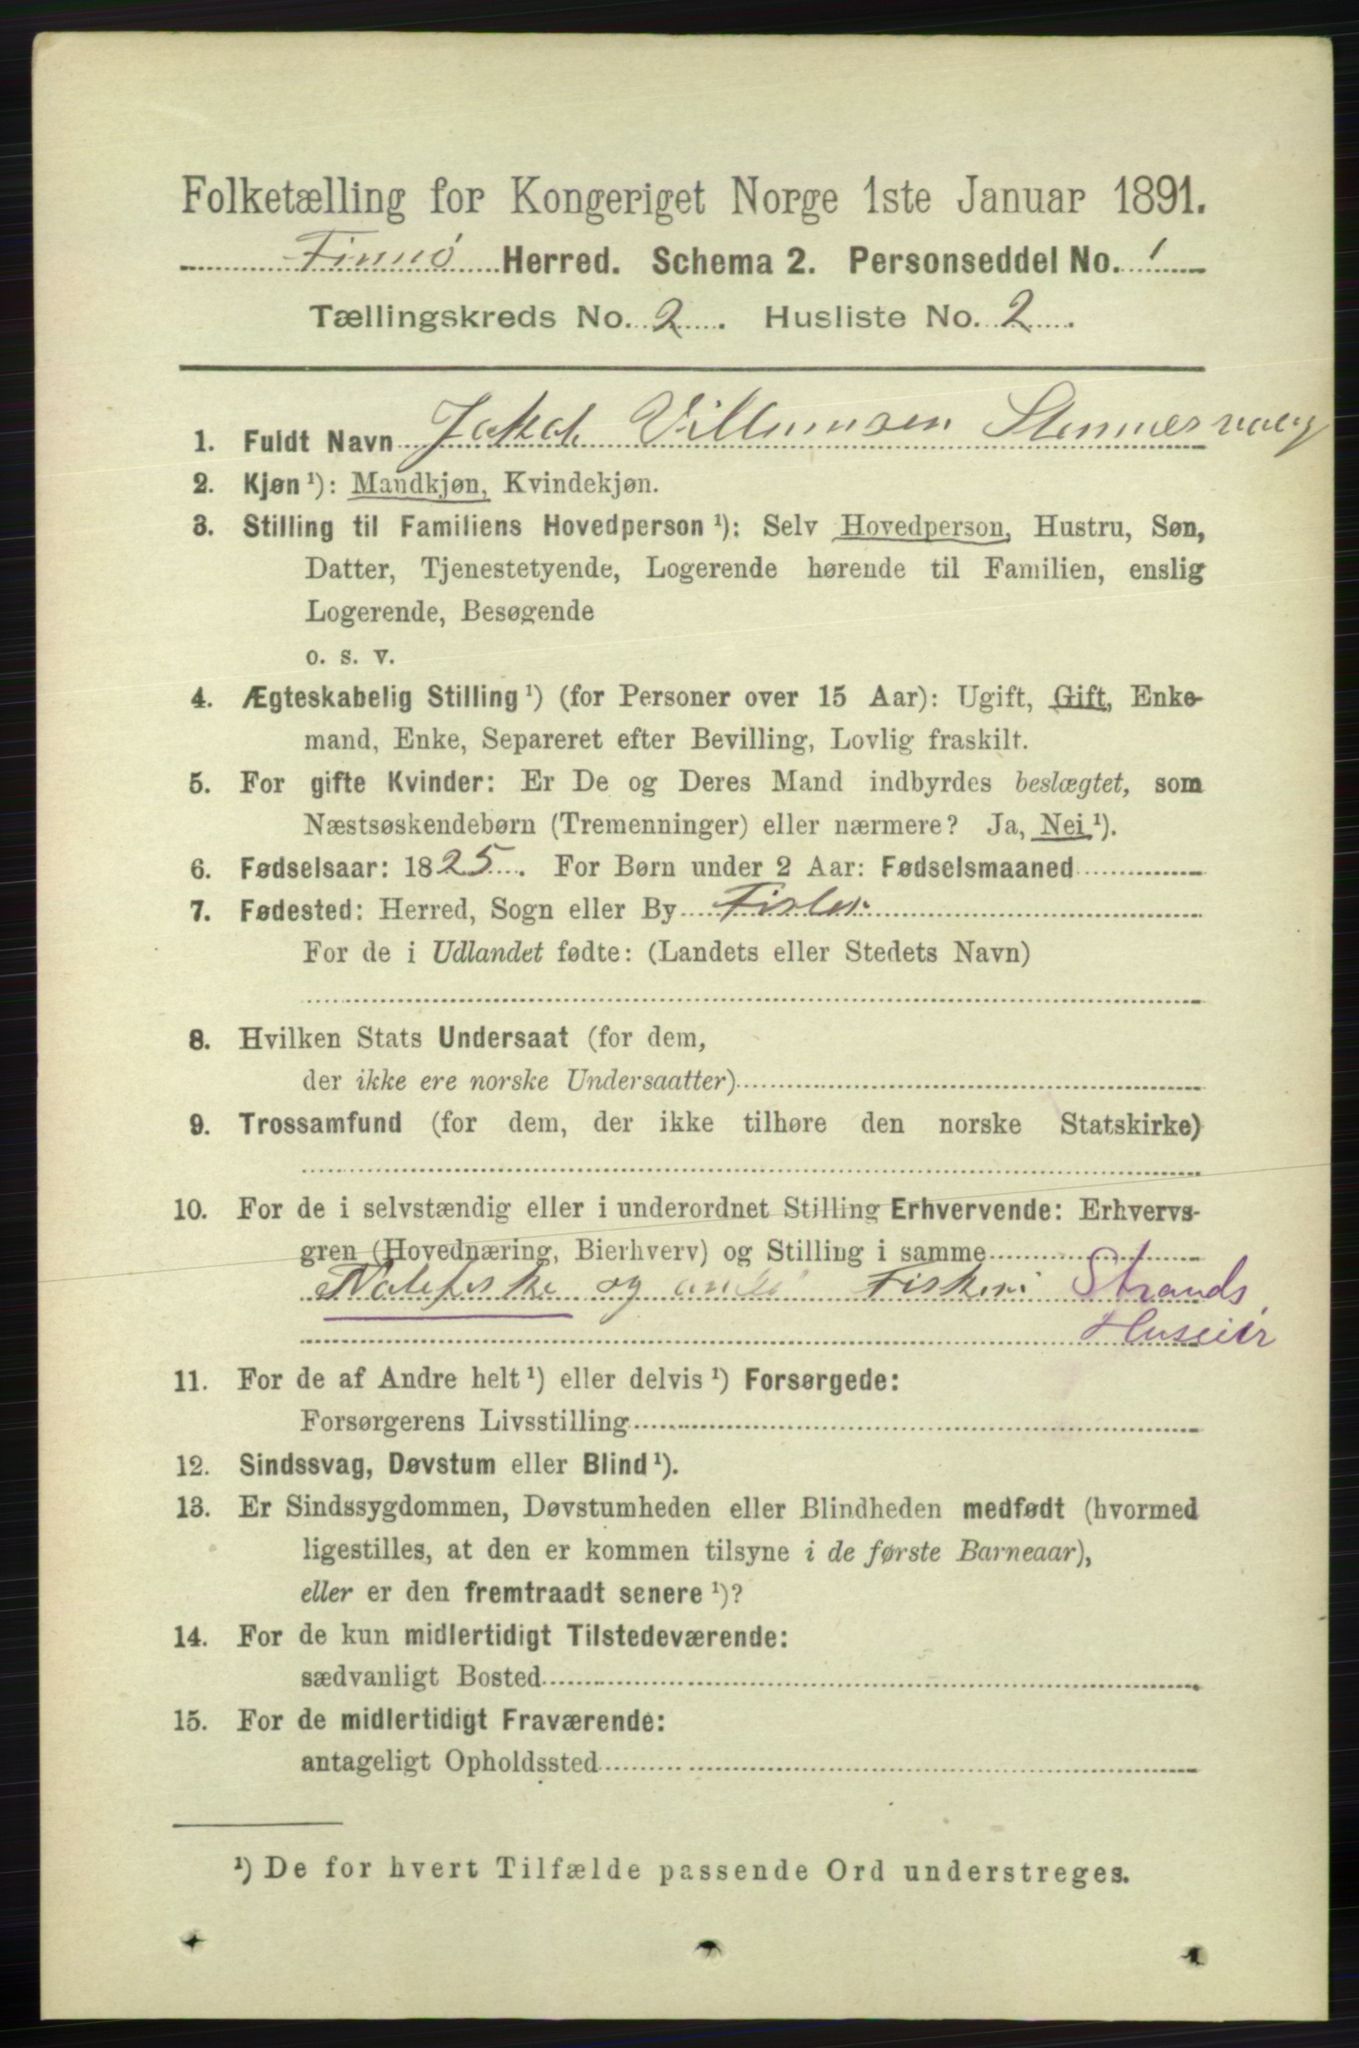 Folketælling for Kongeriget Norge 1ste Januar 1891.
Finnö Herred. Schema 2. Personseddel No. 1
Tællingskreds No. 2. Husliste No. 2.
1. Fuldt Navn Jakob Villumsen Stennesvaag
2. Kjøn ¹): Mandkjøn, Kvindekjøn.
3. Stilling til Familiens Hovedperson ¹): Selv Hovedperson, Hustru, Søn,
Datter, Tjenestetyende, Logerende hørende til Familien, enslig
Logerende, Besøgende
o. s. v.
4. Ægteskabelig Stilling ¹) (for Personer over 15 Aar): Ugift, Gift, Enke-
mand, Enke, Separeret efter Bevilling, Lovlig fraskilt.
5. For gifte Kvinder: Er De og Deres Mand indbyrdes beslægtet, som
Næstsøskendebørn (Tremenninger) eller nærmere? Ja, Nei ¹).
6. Fødselsaar: 1825. For Børn under 2 Aar: Fødselsmaaned
7. Fødested: Herred, Sogn eller By
For de i Udlandet fødte: (Landets eller Stedets Navn)
8. Hvilken Stats Undersaat (for dem,
der ikke ere norske Undersaatter)
9. Trossamfund (for dem, der ikke tilhøre den norske Statskirke)
10. For de i selvstændig eller i underordnet Stilling Erhvervende: Erhvervs-
gren (Hovednæring, Bierhverv) og Stilling i samme
og Fiskeri Strands
Huseier
11. For de af Andre helt ¹) eller delvis ¹) Forsørgede:
Forsørgerens Livsstilling
12. Sindssvag, Døvstum eller Blind ¹).
13. Er Sindssygdommen, Døvstumheden eller Blindheden medfødt (hvormed
ligestilles, at den er kommen tilsyne i de første Barneaar),
eller er den fremtraadt senere ¹)?
14. For de kun midlertidigt Tilstedeværende:
sædvanligt Bosted
15. For de midlertidigt Fraværende:
antageligt Opholdssted
¹) De for hvert Tilfælde passende Ord understreges.